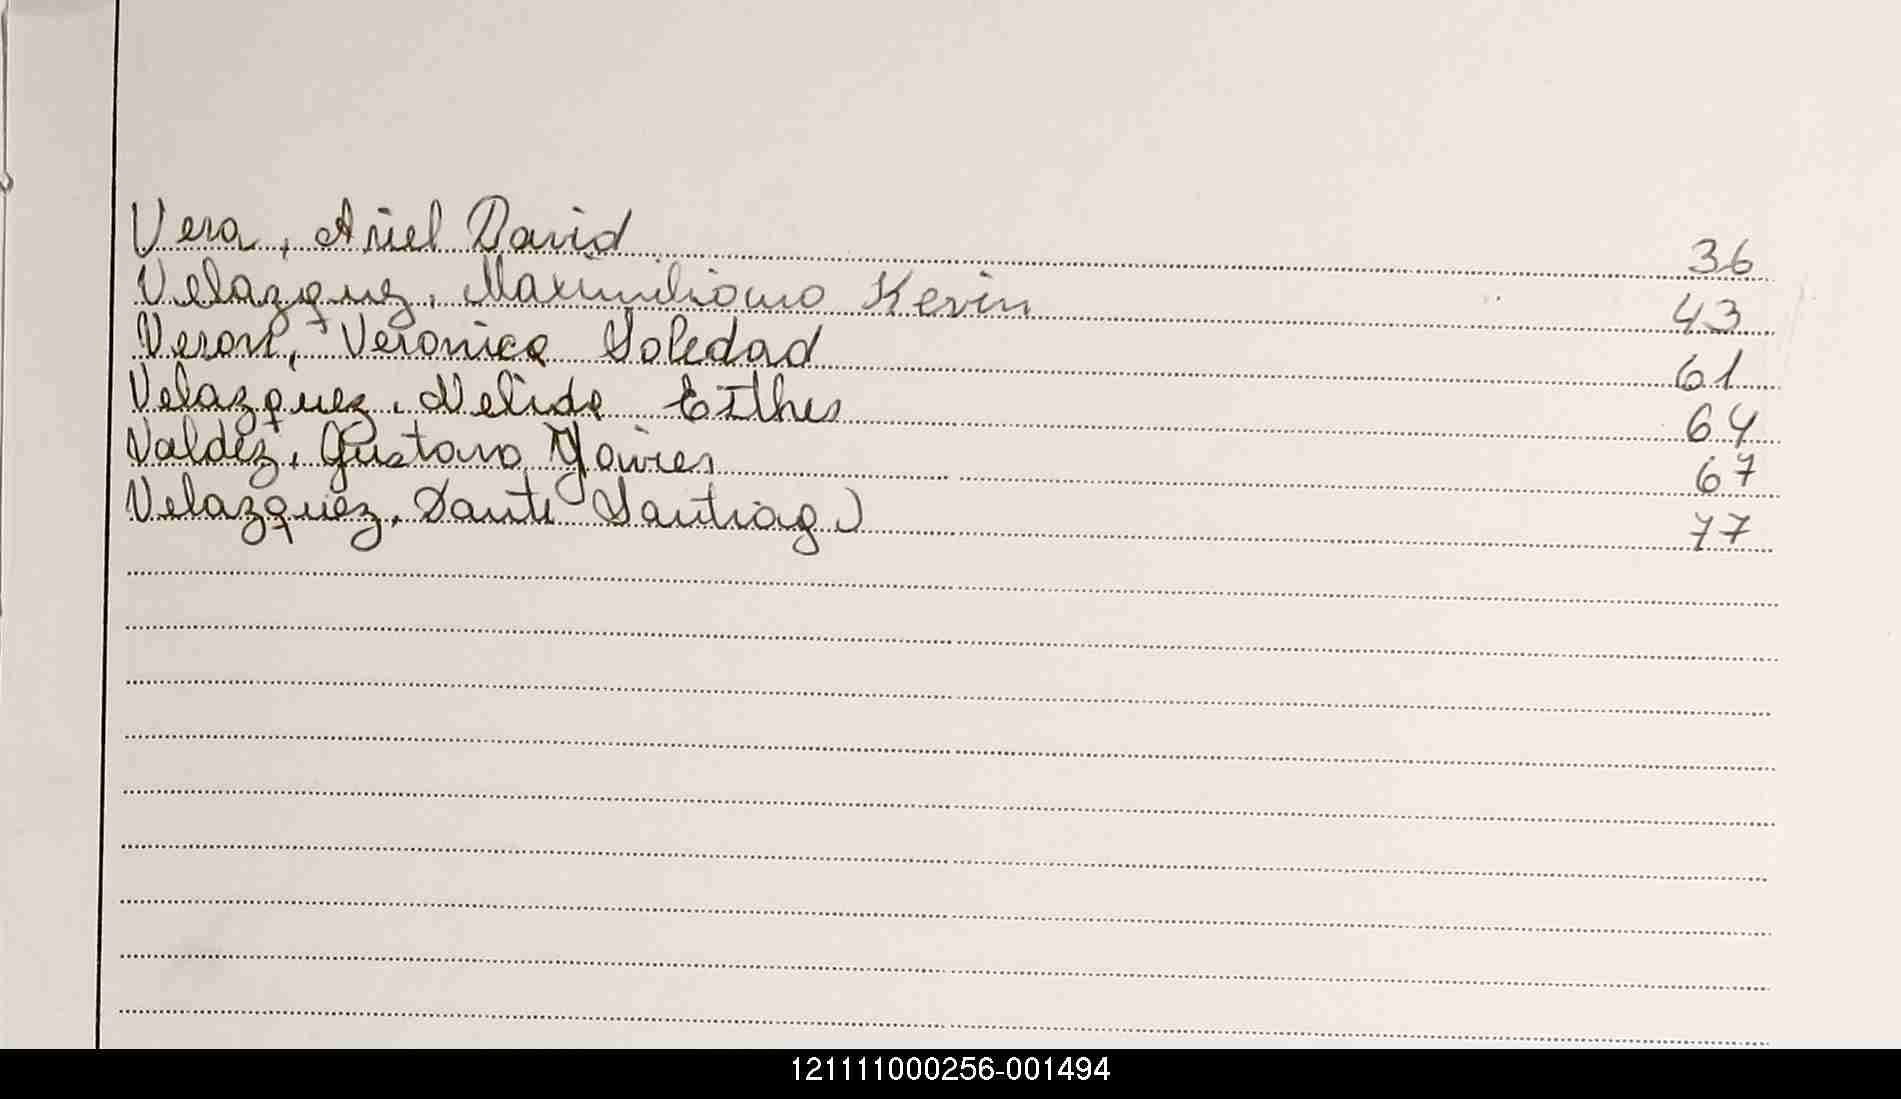 Vera, Ariel David 36
Velazquez, Maximiliano Kevin 43
Veron, Veronica Soledad 61
Velazquez, Nelida Esther 64
Valdez, Gustavo Javier 67
Velazquez, Dante Santiago 77
121111000256-001494